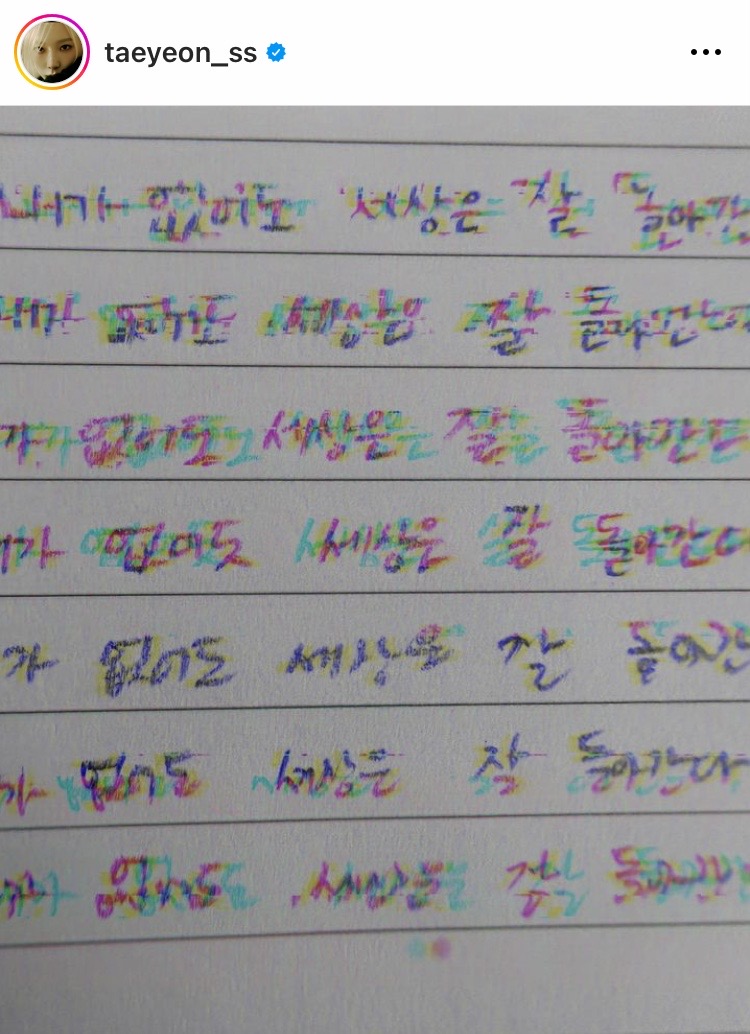 taeyeon_ss
내가 없어도 세상은 잘 돌아간
내가 없어도 세상은 잘 돌아간다
가 없어도 세상은 잘 돌아간다
내가 없어도 세상은 잘 돌아간다
가 없어도 세상은 잘 돌아간
가 없어도 세상은 잘 돌아간다
가 없어도 세상은 잘 돌아간